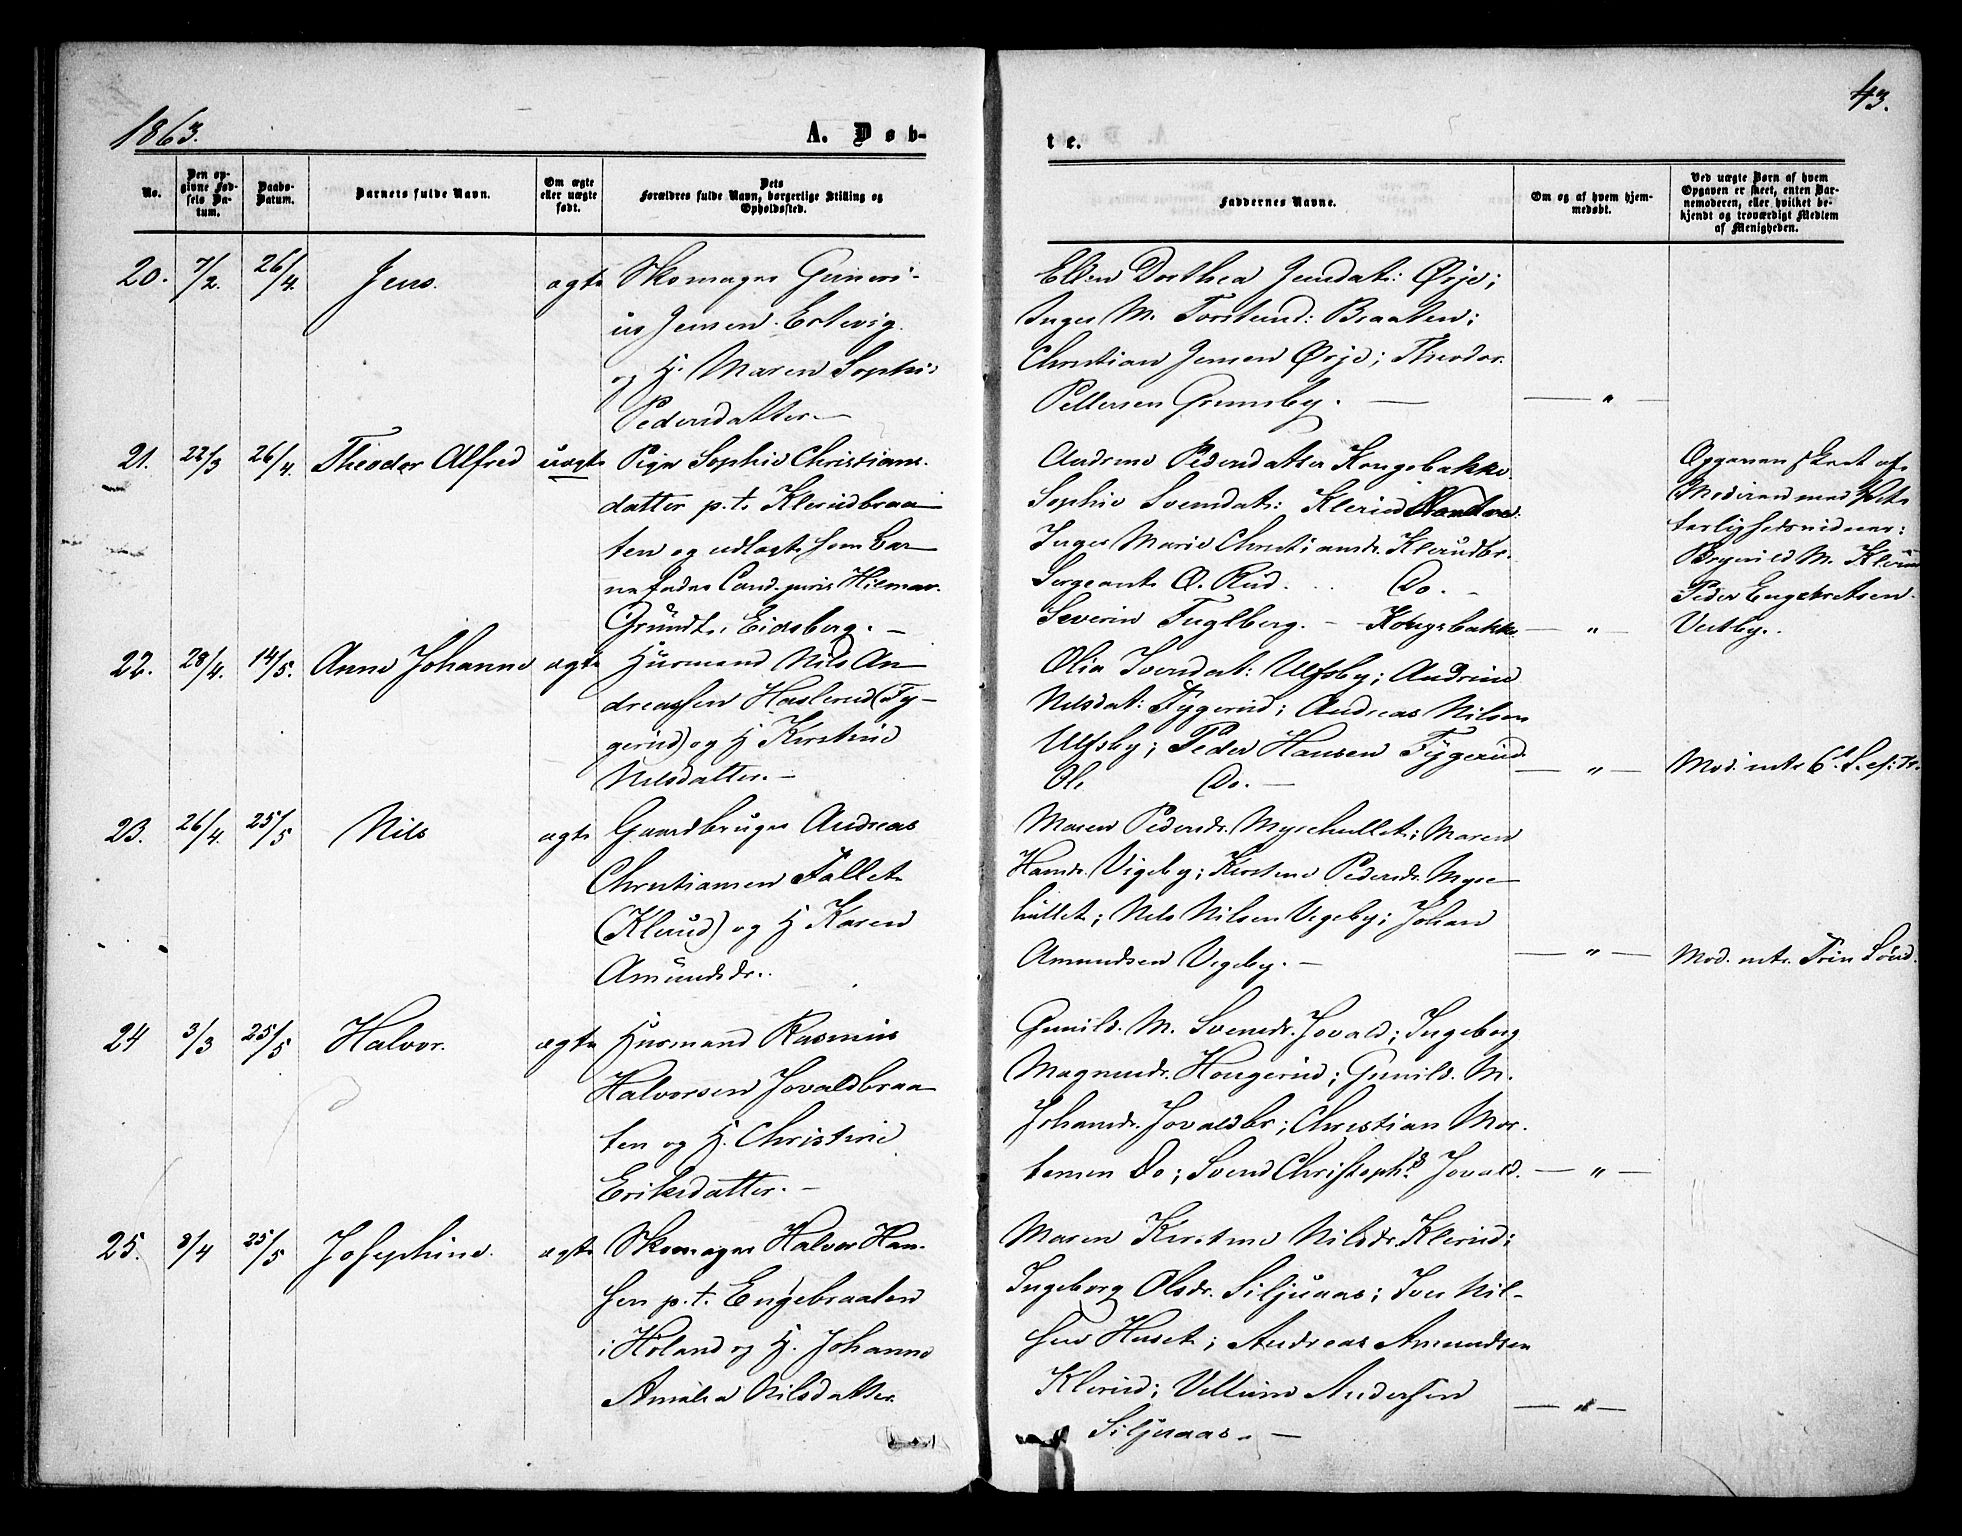 1863.
A. Døb-
te.
43.
No.
Den op-
givne Fød-
sels Da-
tum.
Daabs-
Datum.
Barnets fulde Navn.
Om ægte
eller uægte
født.
Dets
Forældres fulde Navn, borgerlige Stilling og
Opholdssted.
Faddernes Navne.
Om og af hvem hjem-
medøbt.
Ved uægte Børn af hvem
Opgaven er skeet, enten Bar-
nemoderen, eller hvilket be-
kjendt og troværdigt Medlem
af Menigheden.
20. 7/2. 26/4. Jens. ægte
Skomager Guneri-
us Jensen Ertevig
og H. Maren Sophie
Pedersdatter.—
Ellen Dorthea Jensdat: Ørje;
Inger M. Torstensd: Braaten;
Christian Jensen Ørje; Theodor
Pettersen Grimsby. — — " —
21. 22/3 26/4. Theodor Alfred uægte
Pige Sophie Christians-
datter p.t. Klerudbraa-
ten og udlagt som Bar-
nefader Cand. juris Hilmar
Gründt, Eidsberg. —
Andrine Pedersdatter Kongsbakke
Sophie Svensdat: Klerud
Inger Marie Christiansdr. Klerudbr.
Sergeant O. Rud. Do. -
Severin Fuglberg. - Kongsbakke — " —
Opgaven skeet af
Moderen med
Peder Engebretsen
Vestby.
22. 28/4. 14/5. Anne Johanne ægte
Husmand Nils An-
dreassen Haslerud (Ty-
gerud) og H Kirstine
Nilsdatter. —
Olia Svensdat: Ulfsby; Andrine
Nilsdat: Tygerud; Andreas Nilsen
Ulfsby; Peder Hansen Tygerud
Ole Do. — — " —
23. 26/4. 25/5 Nils ægte
Gaardbruger Andreas
Christiansen Fallet
(Klerud) og H Karen
Amundsdr..
Maren Pedersdr. Myrehullet; Maren
Hansdr. Vigeby; Kirstine Pedersdr. Myre-
hullet; Nils Nilsen Vigeby; Johan
Amundsen Vigeby. — — " —
24 3/3 25/5 Halvor. ægte
Husmand Rasmus
Halvorsen Jovaldbraa-
ten og H. Christine
Eriksdatter. —
Gunild. M. Svensdr. Jovald; Ingeborg
Magnusdr. Hougerud; Gunild. M.
Johansdr. Jovaldbr; Christian Mor-
tensen Do; Svend Christophs Jovald. — " —
25. 8/4 25/5 Josephine. ægte
Skomager Halvor Han-
sen p.t. Engebraaten
i Høland og H. Johanne
Amalia Nilsdatter
Maren Kirstine Nilsdr. Klerud;
Ingeborg Olsdr. Siljuaas; Iver Nil-
sen Huset; Andreas Amundsen
Klerud; Andersen
Siljuaas. — — " —